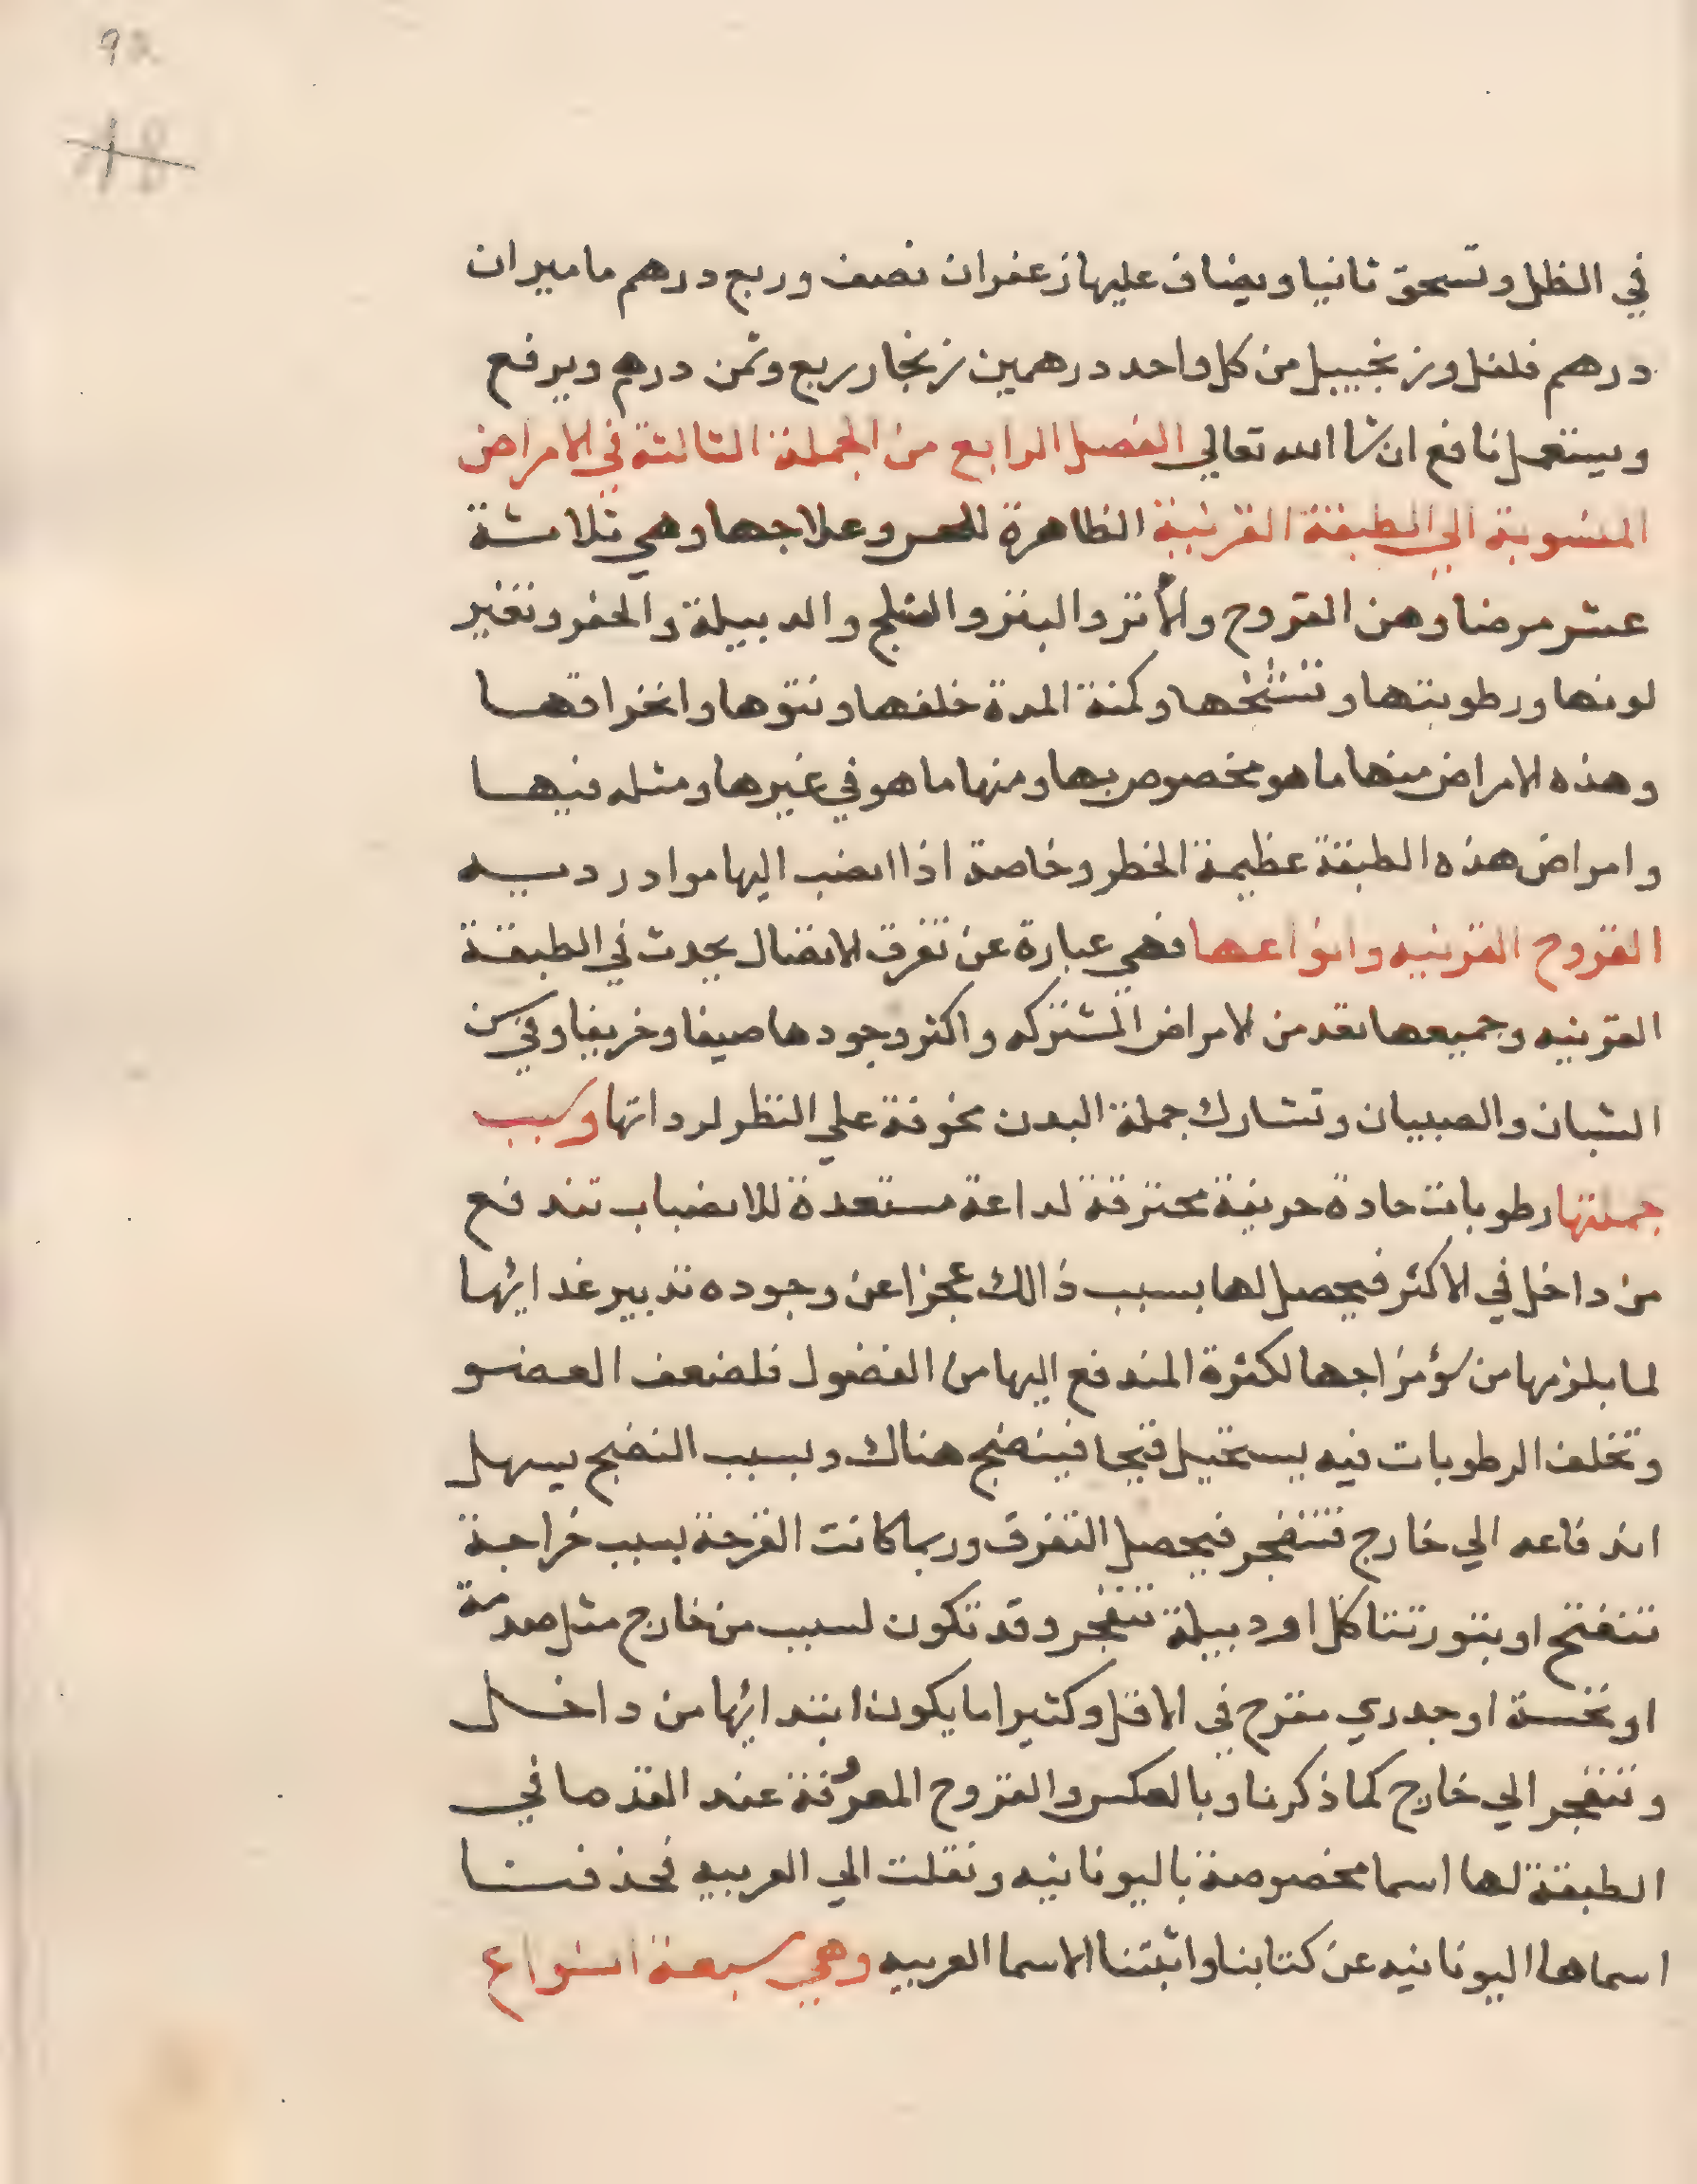 92
في الظل وتسحق ثانيا ويضاف عليها زعفران نصف وربع درهم ماميران
درهم فلفل وزنجبيل من كل واحد درهمين زنجار ربع وثمن درهم ويرفع
ويستعمل نافع ان شا الله تعالي الفصل الرابع من الجملة الثالثة في الامراض
المنسوبة الي الطبقة القرنية الظاهرة للحس وعلاجها وهي ثلاثة
عشر مرضا وهن القروح والأثر والبثر والسلج والدبيلة والحفر وتغير
لونها ورطوبتها وتشنجها وكمنة المدة خلفها ونتوها وانخراقها
وهذه الامراض منها ما هو مخصوص بها ومنها ما هو في غيرها ومثله فيها
وامراض هذه الطبقة عظيمة الخطر وخاصة اذا انصب اليها مواد رديه
القروح القرنيه وانواعها فهي عبارة عن تفرق الاتصال يحدث في الطبقة
القرنيه وجميعها تعد من الامراض المشتركه واكثر وجودها صيفا وخريفا وفي سن
الشبان والصبيان وتشارك جملة البدن مخوفة علي النظر لرداتها وسبب
جملتها رطوبات حادة حريفة محترقة لداعة مستعدة للانصباب تندفع
من داخل في الاكثر فيحصل لها بسبب ذالك عجزا عن وجوده تدبير غدائها
لما يلزمها من سؤ مزاجها لكثرة المندفع اليها من الفضول فلضعف العضو
وتخلف الرطوبات فيه يستحيل قيحا فينضج هناك وبسبب النضج يسهل
اندفاعه الي خارج فتنفجر فيحصل التفرق وربما كانت القرحة بسبب خراجة
تنفتح او بثور تتاكل او دبيلة تنفجر وقد تكون لسبب من خارج مثل صدمة
او نخسة او جدري مقرح في الاقل وكثيرا ما يكون ابتدائها من داخل
وتنفجر الي خارج كما ذكرنا وبالعكس والقروح المعروفة عند القدما في
الطبقة لها اسما مخصوصة باليونانيه ونقلت الي العربيه فحذفنا
اسماها اليونانيه عن كتابنا واثبتنا الاسما العربيه وهي سبعة انواع